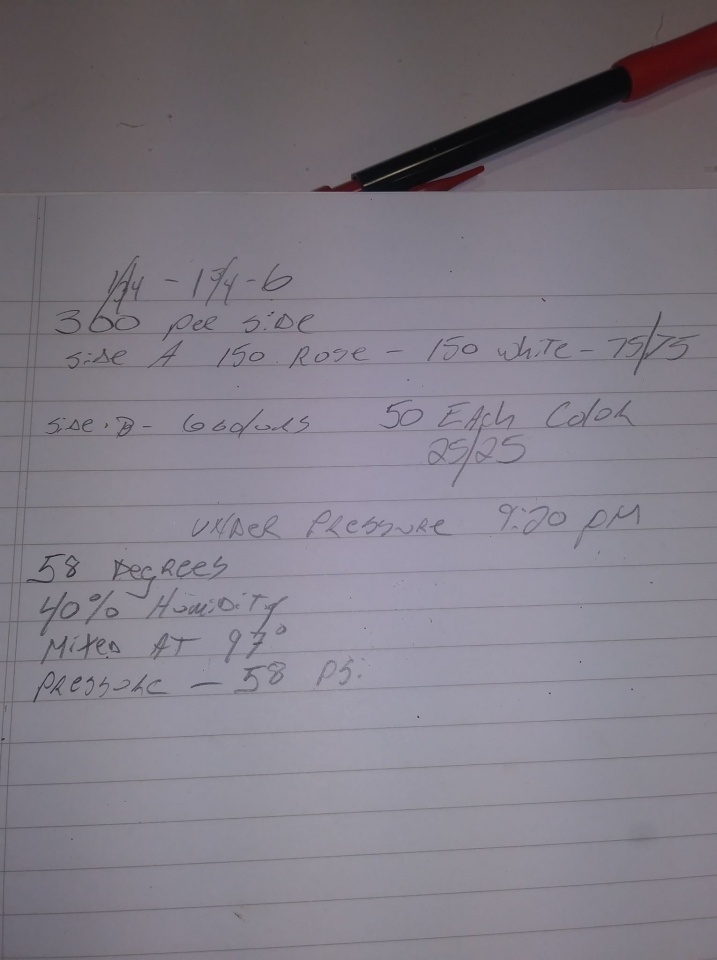 1 3/4 - 1 3/4 - 6
300 per side
side A 150 Rose - 150 white - 75/75
side B - 6 colors 50 Each Color
25/25
under Pressure 9:20 pm
58 Degrees
40% Humidity
Mixed AT 97°
Pressure - 58 PSi